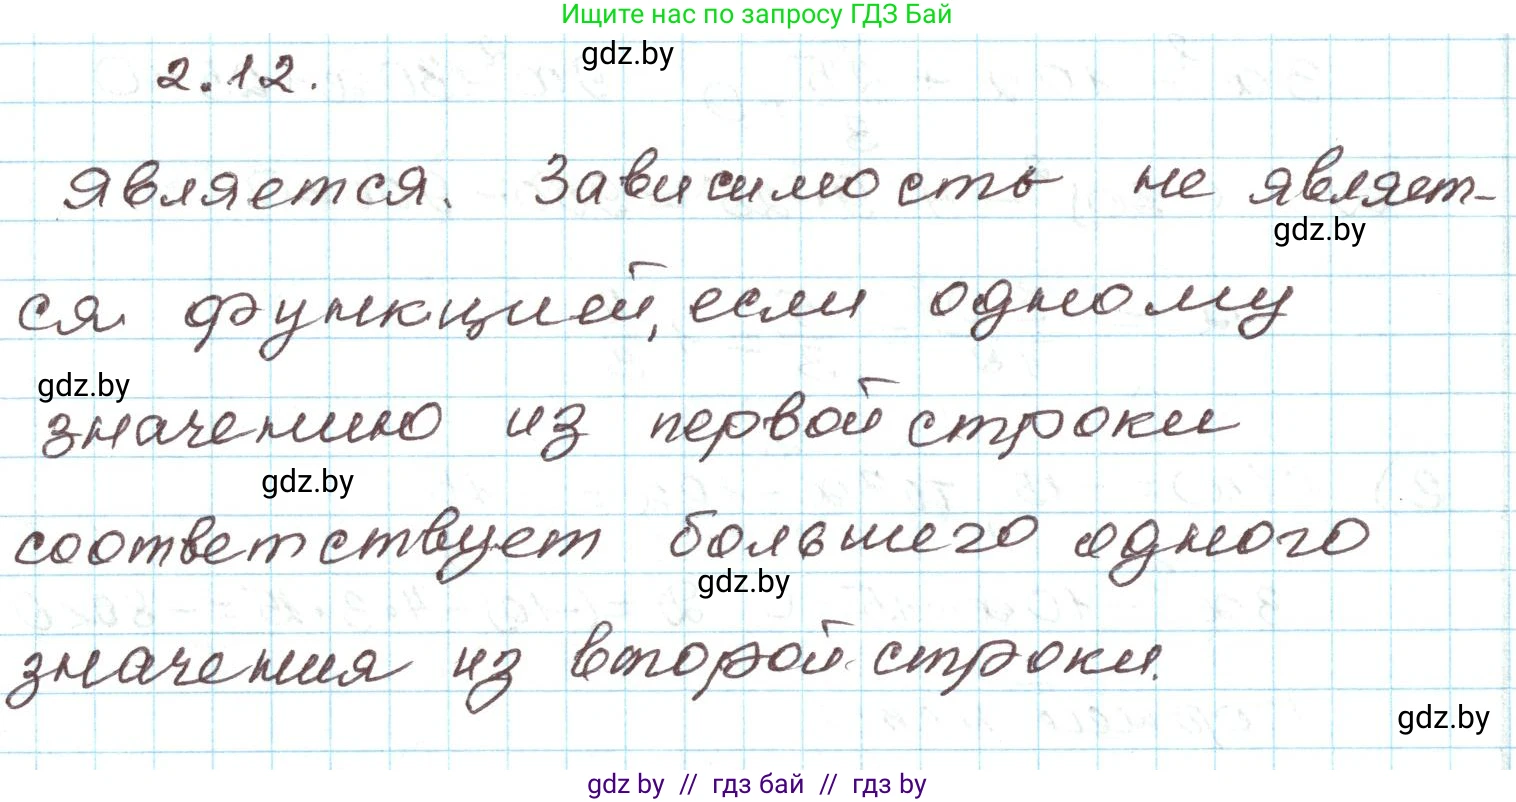 Ищите нас по запросу ГДЗ Бай
gdz.by
2.12.
Является. Зависимость не являет-
gdz.by
ся функцией, если одному
gdz.by
значению из первой строки
gdz.by
соответствует большего одного
gdz.by
значения из второй строки.
gdz.by
gdz by // гдз бай // гдз by